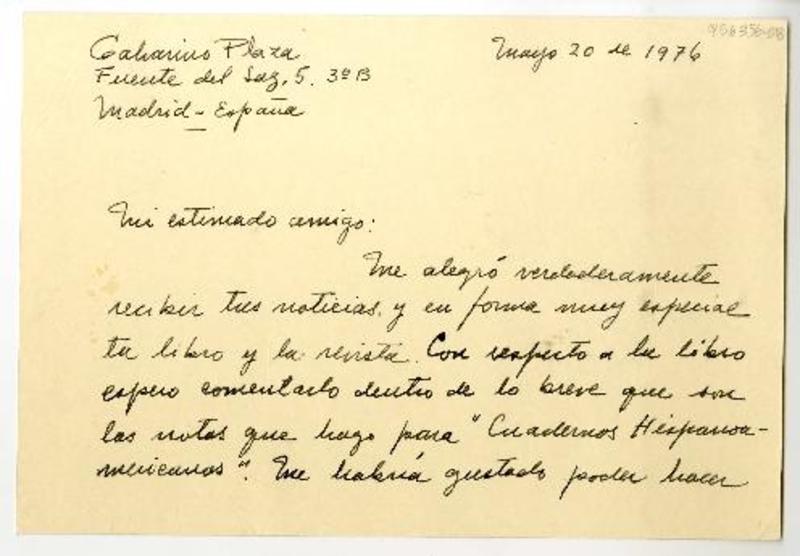 Galvarino Plaza
Fuente del Saz, 5. 3º B
Madrid - España
Mayo 20 de 1976
Mi estimado amigo:
Me alegró verdaderamente
recibir tus noticias, y en forma muy especial
tu libro y la revista. Con respecto a tu libro
espero comentarlo dentro de lo breve que son
las notas que hago para "Cuadernos Hispanoa-
mericanos". Me habría gustado poder hacer